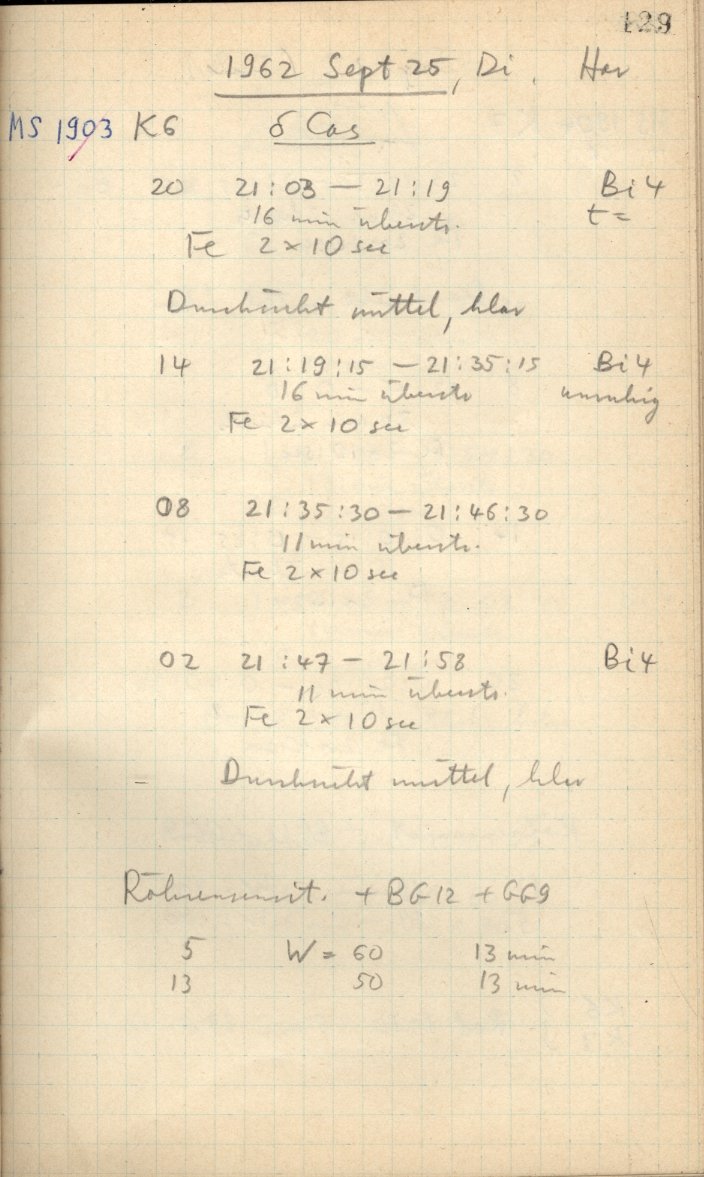 129
1962 Sept 25, Di. Hor
MS 1903 K6 δ Cas
20 21:03 — 21:19 Bi 4
16 min überstr. t =
Fe 2 × 10 sec
Durchsicht mittel, klar
14 21:19:15 — 21:35:15 Bi 4
16 min überstr unruhig
Fe 2 × 10 sec
08 21:35:30 — 21:46:30
11 min überstr.
Fe 2 × 10 sec
02 21:47 — 21:58 Bi 4
11 min überstr.
Fe 2 × 10 sec
– Durchsicht mittel, klar
Röhrensensit. + BG12 + GG9
5 W = 60 13 min
13 50 13 min